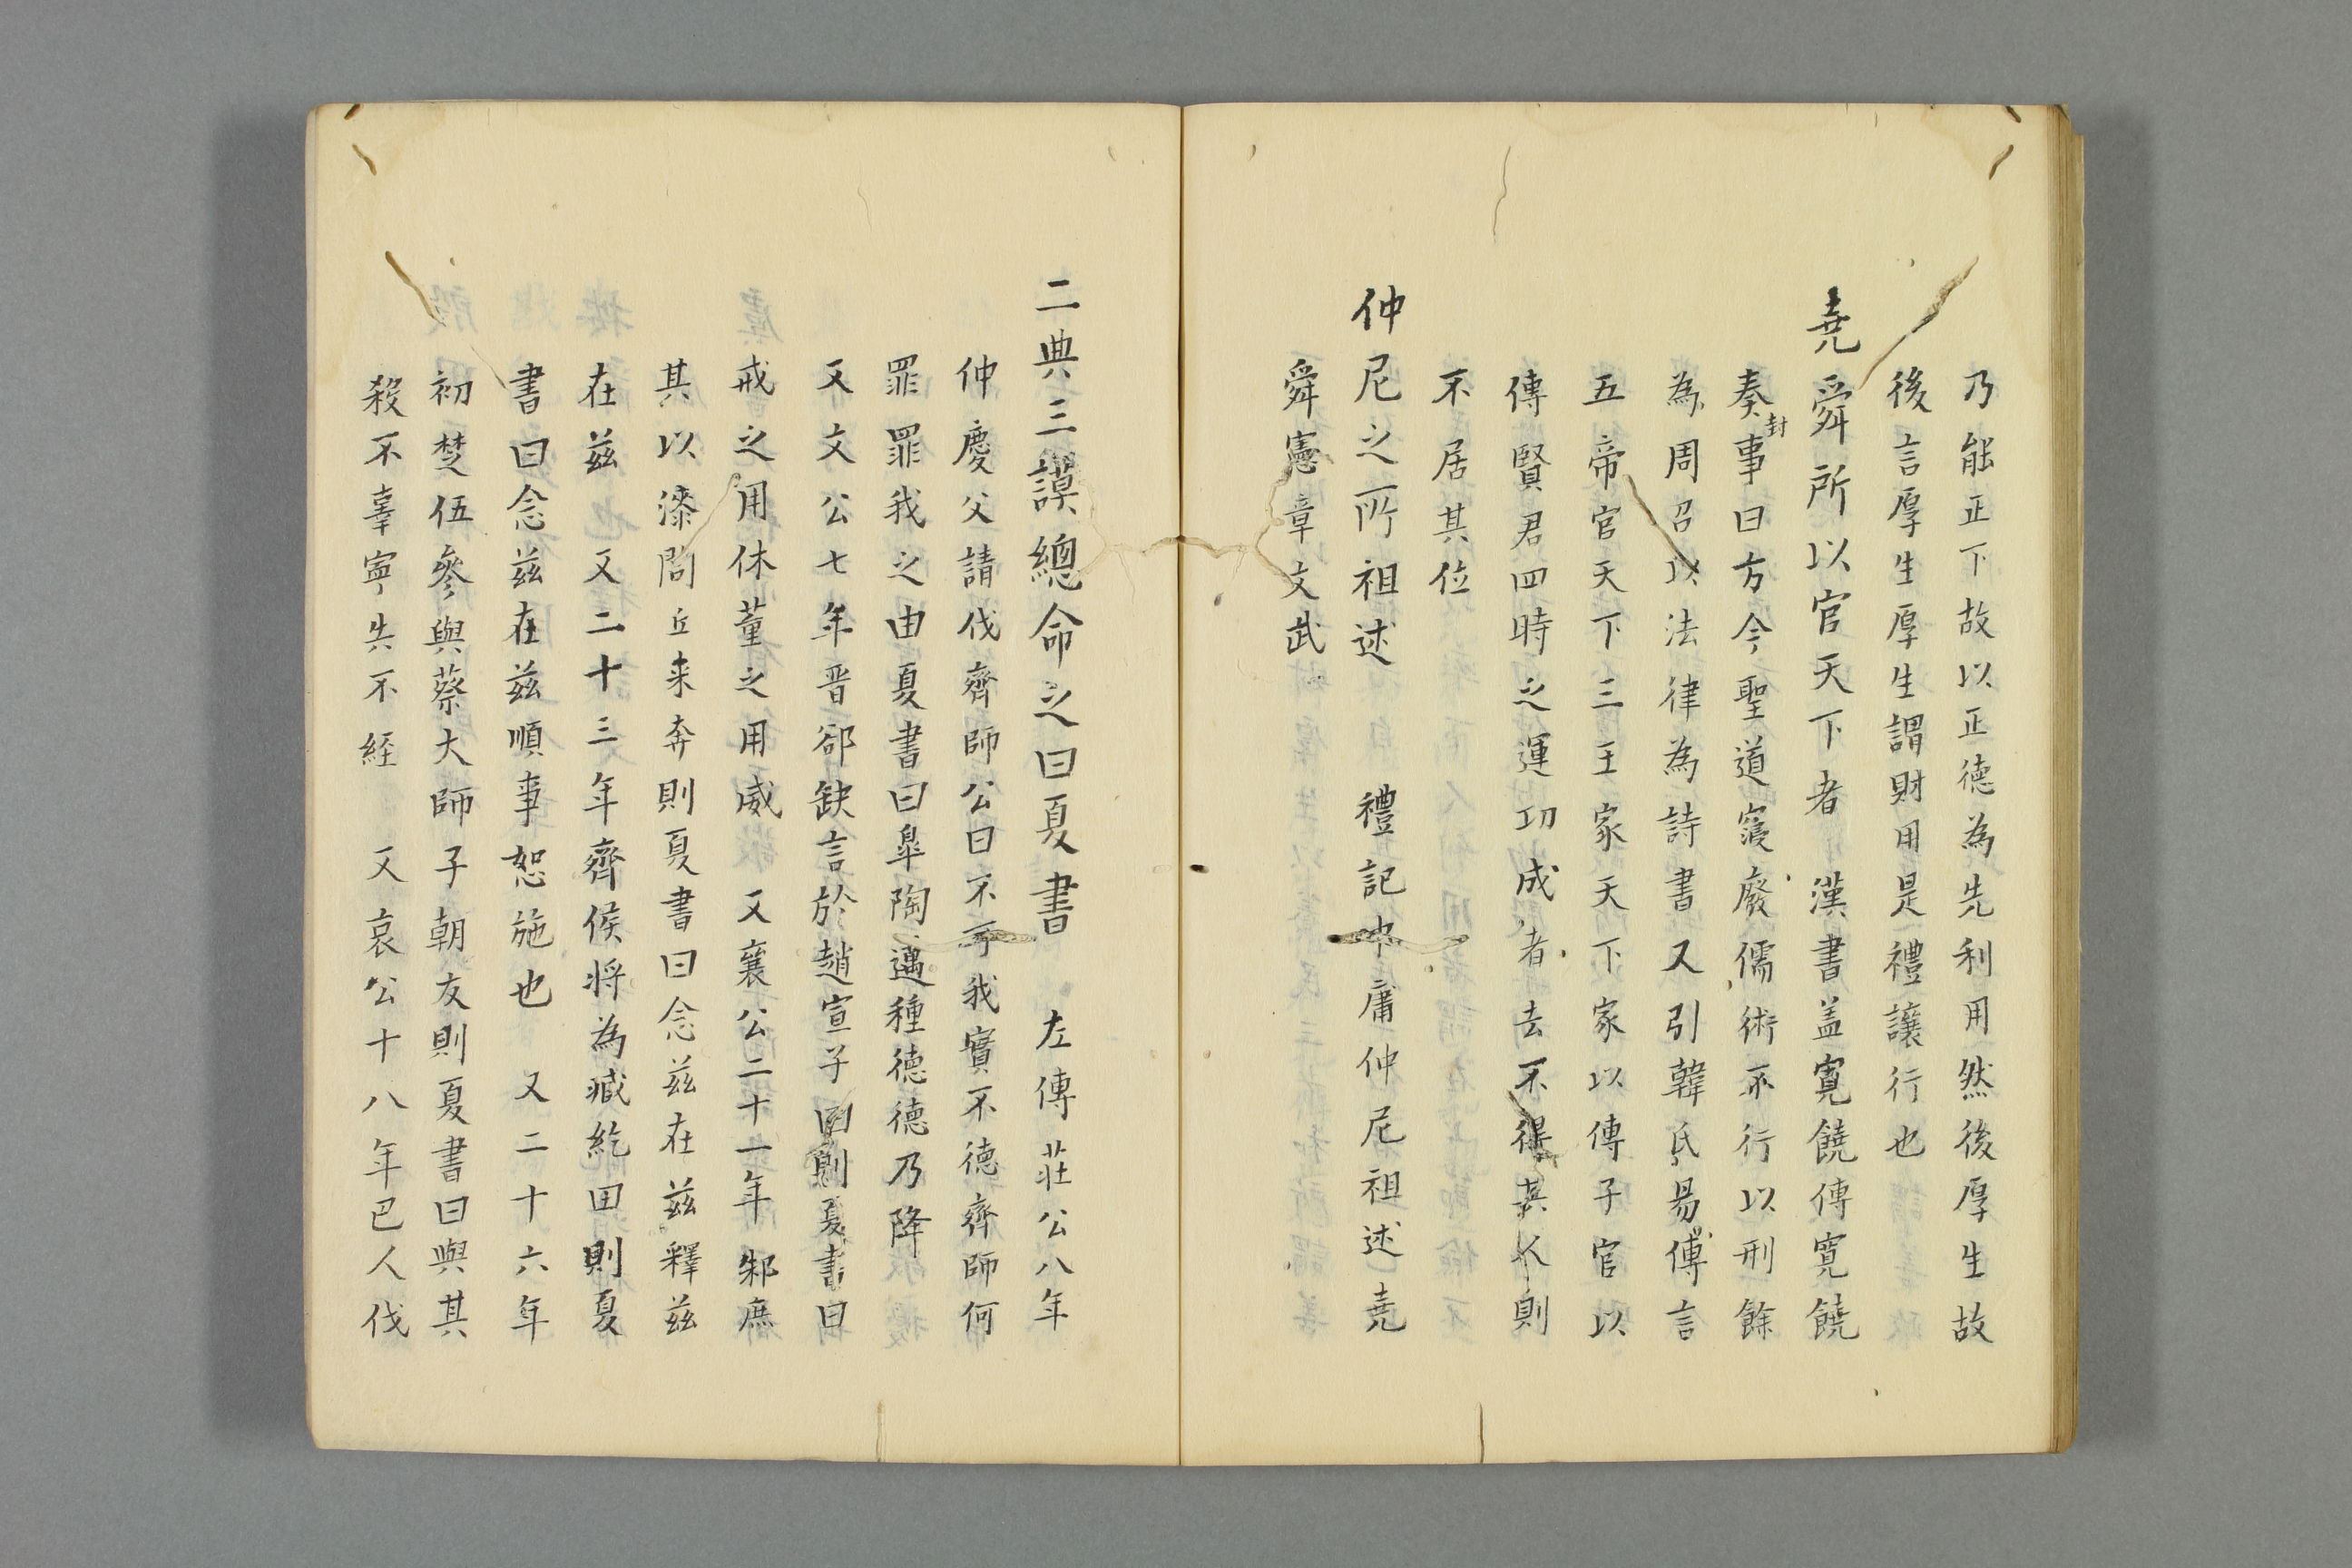 乃能正下故以正德為先利用然後厚生故
後言厚生厚生謂財用是禮讓行也
堯舜所以官天下者 漢書盖寬饒傳寬饒
奏封事曰方今聖道寖廢儒術不行以刑餘
為周召以法律為詩書又引韓氏易傳言
五帝官天下三王家天下家以傳子官以
傳賢君四時之運功成者去不得其人則
不居其位
仲尼之所祖述 禮記中庸仲尼祖述堯
舜憲章文武
二典三謨總命之曰夏書 左傳莊公八年
仲慶父請伐齊師公曰不可我實不德齊師何
罪罪我之由夏書曰臯陶邁種德德乃降
又文公七年晋郤缺言於趙宣子曰則夏書曰
戒之用休董之用威 又襄公二十一年邾庶
其以漆閭丘来奔則夏書曰念兹在兹釋兹
在兹 又二十三年齊侯将為臧紇田則夏
書曰念兹在兹順事恕施也 又二十六年
初楚伍參與蔡大師子朝友則夏書曰與其
殺不辜寧失不経 又哀公十八年巴人伐